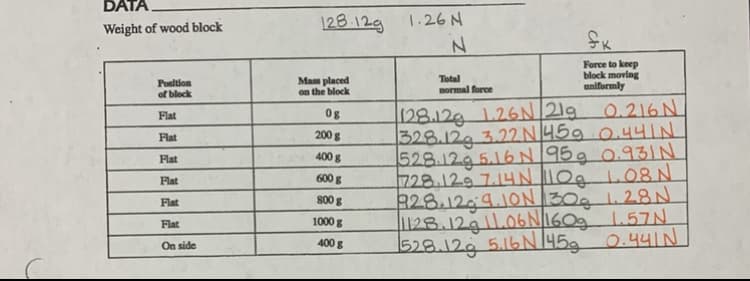 DATA
Weight of wood block 128.12g 1.26 N
N fK
Position of block Mass placed on the block Total normal force Force to keep block moving uniformly
Flat 0 g 128.12g 1.26N 21g 0.216N
Flat 200 g 328.12g 3.22N 45g 0.441N
Flat 400 g 528.12g 5.16N 95g 0.931N
Flat 600 g 728.12g 7.14N 110g 1.08N
Flat 800 g 928.12g 9.10N 130g 1.28N
Flat 1000 g 1128.12g 11.06N 160g 1.57N
On side 400 g 528.12g 5.16N 45g 0.441N